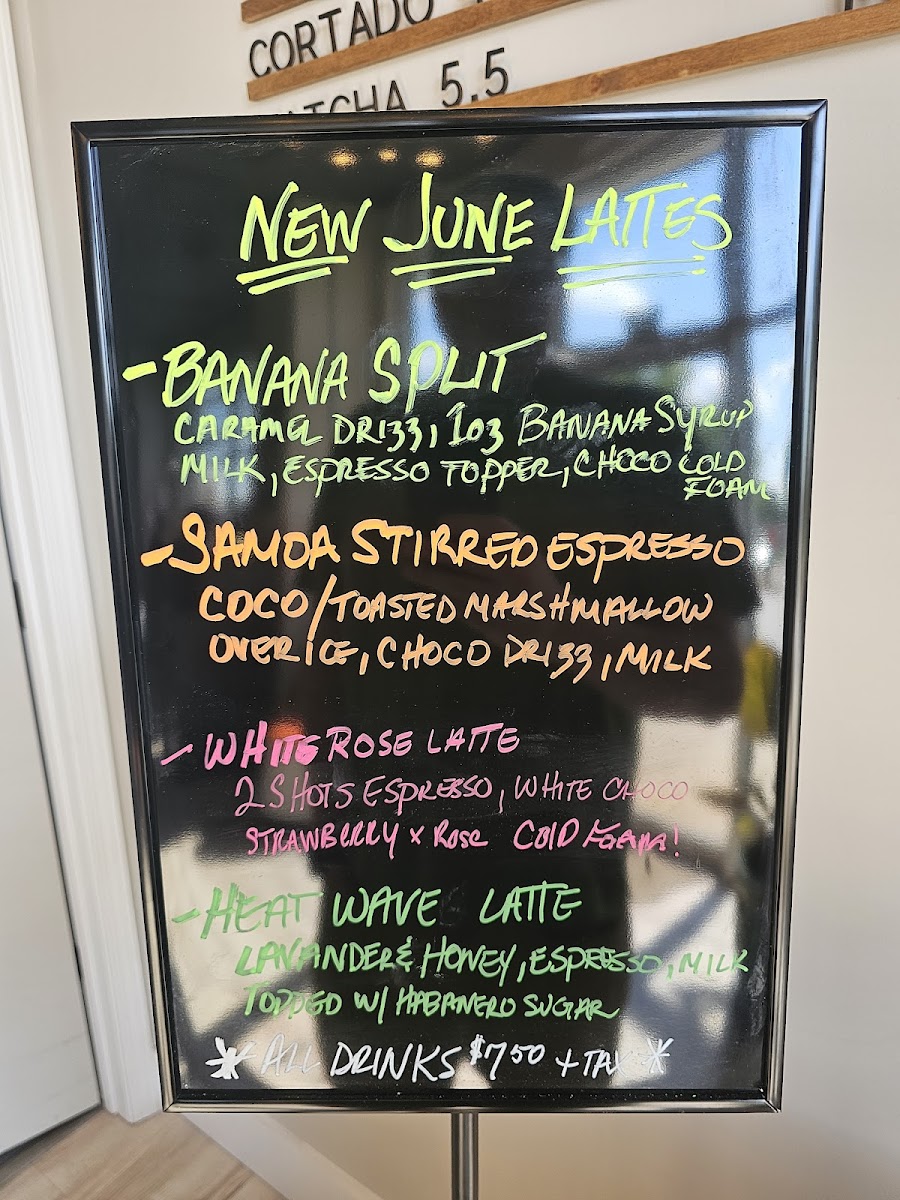 CORTADO
MATCHA 5.5
NEW JUNE LATTES
- BANANA SPLIT
CARAMEL DRIZZ, 1oz BANANA SYRUP
MILK, ESPRESSO TOPPER, CHOCO COLD
FOAM
- SAMOA STIRRED ESPRESSO
COCO/TOASTED MARSHMALLOW
OVER ICE, CHOCO DRIZZ, MILK
- WHITE ROSE LATTE
2 SHOTS ESPRESSO, WHITE CHOCO
STRAWBERRY x ROSE COLD FOAM!
- HEAT WAVE LATTE
LAVANDER & HONEY, ESPRESSO, MILK
TOPPED W/ HABANERO SUGAR
* ALL DRINKS $7.50 + TAX *